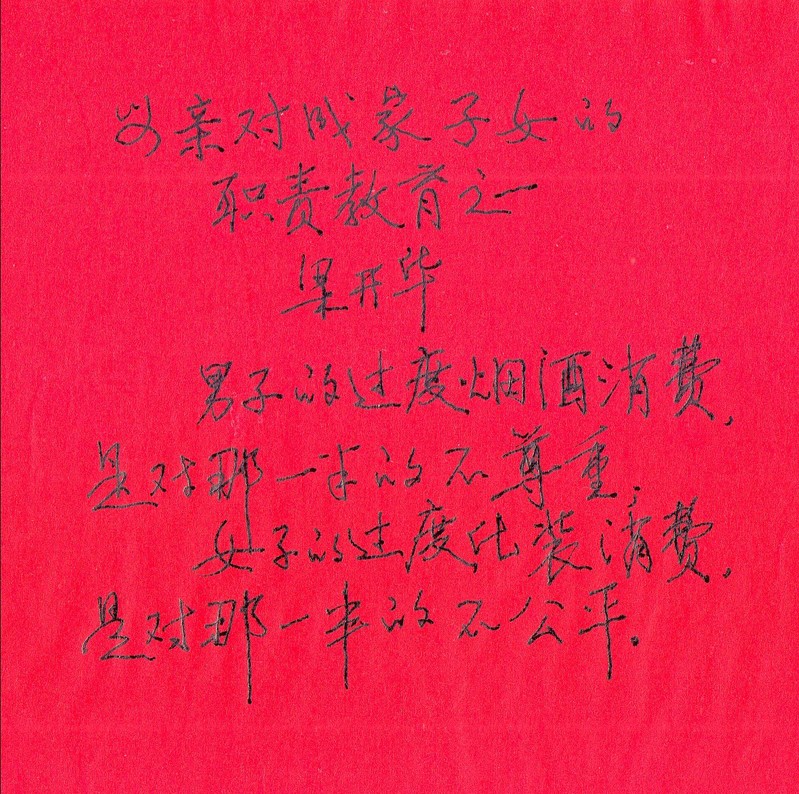 父亲对成家子女的
职责教育之一
梁开华
男子的过度烟酒消费，
是对那一半的不尊重；
女子的过度化装消费，
是对那一半的不公平。